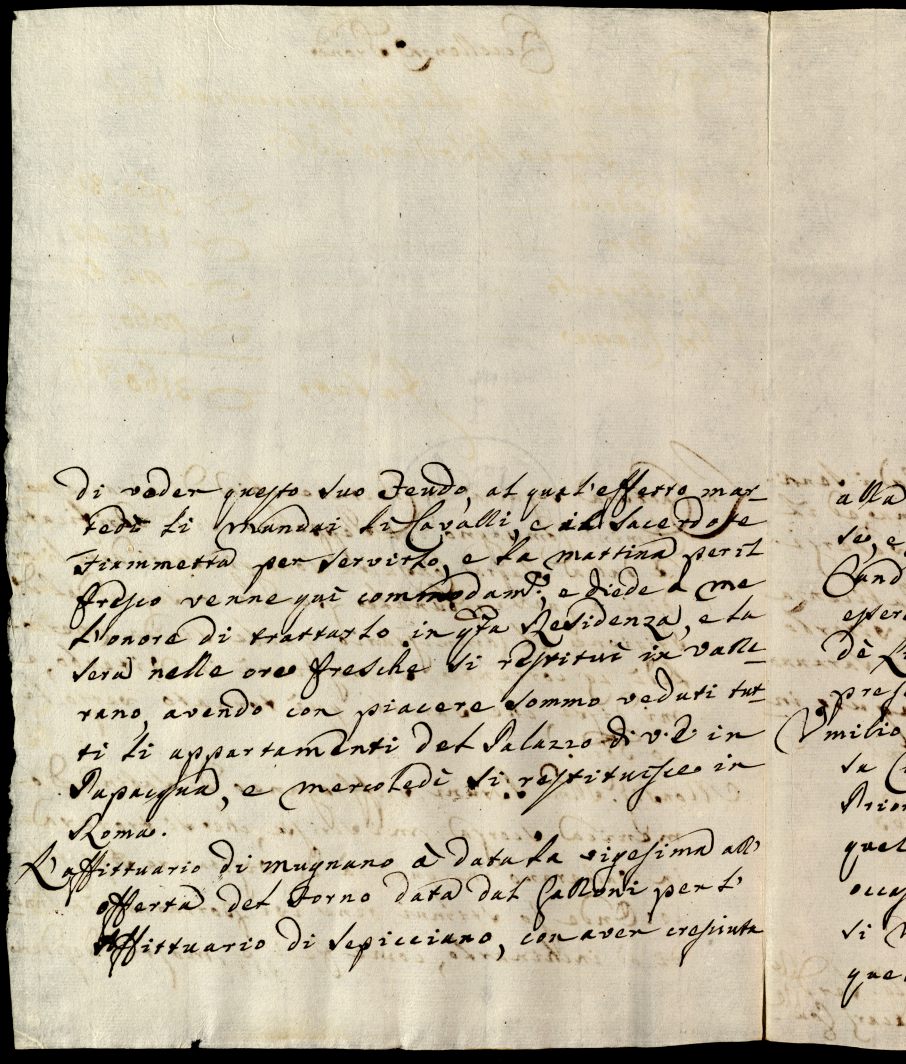 di veder questo suo Feudo, al qual'effetto mar=
tedì li mandai li Cavalli, e il Sacerdote
Fiammetta per servirlo, e la mattina per il
fresco venne quì commodam.te, e diede a me
l'onore di trattarlo in q.sta Residenza, e la
sera nelle ore fresche si restituì in Valle=
rano, avendo con piacere sommo veduti tut=
ti li appartamenti del Palazzo di V.E. in
Papacqua, e mercoledì si restituisce in
Roma.
L'affittuario di Mugnano à data la vigesima all'
offerta del Forno data dal Galloni per l'
Affittuario di Sepicciano, con aver cresciuta
alla
se, e
Cand
esere
dè
pres
Umilio
su
Prior
quel
occas
si
quel